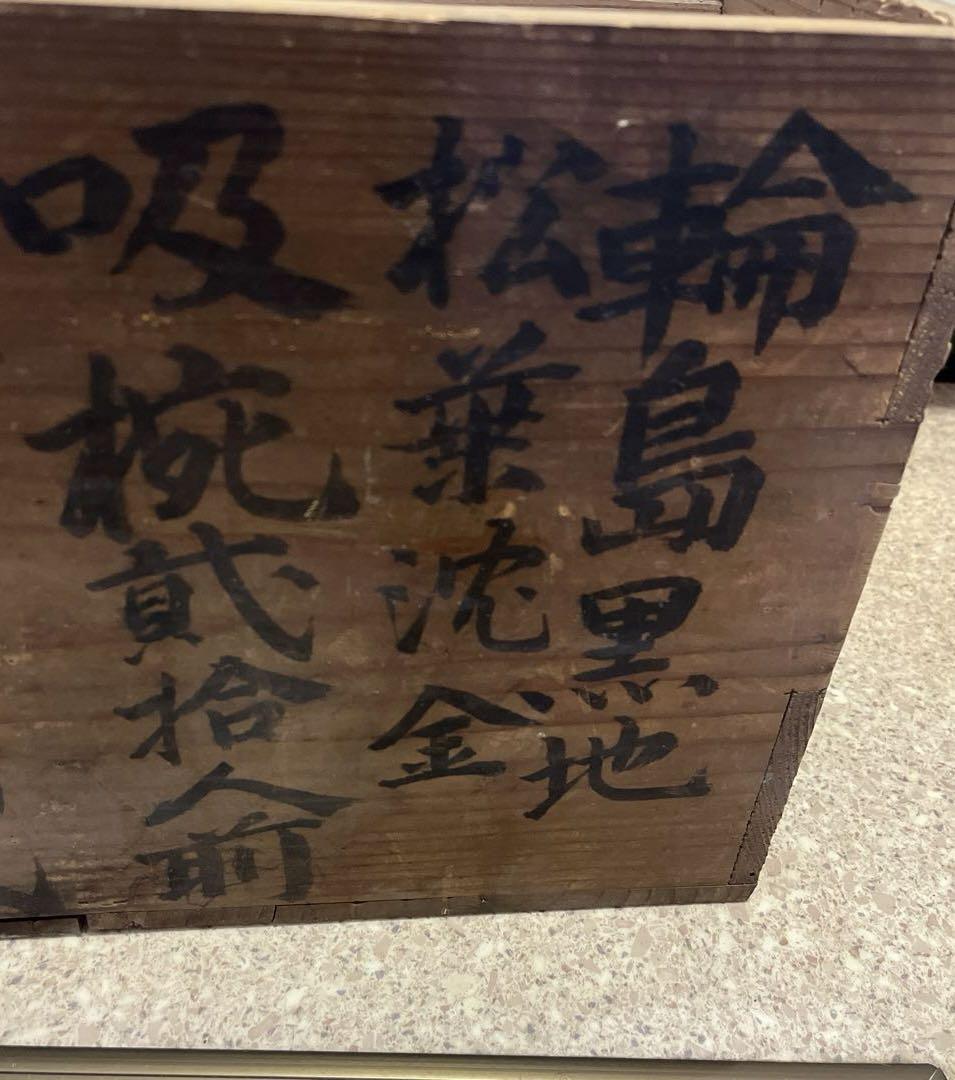 輪島黒地
松葉沈金
吸椀貳拾人前